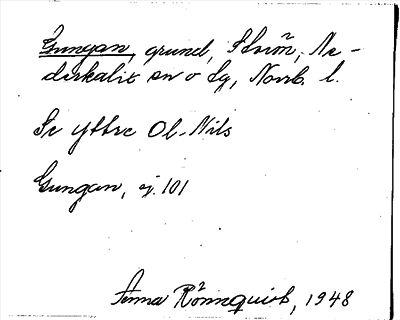 Gungan, grund, Storön, Ne-
derkalix sn o Lg, Norrb. l.
Se yttre Ol-Nils
Gungan, ej. 101
Anna Rönnquist, 1948